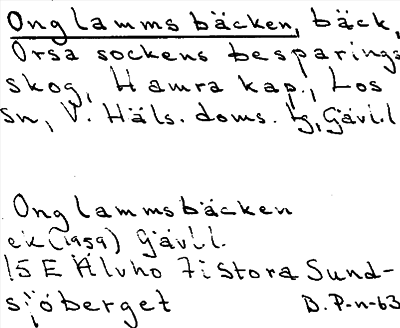 Onglammsbäcken, bäck,
Orsa sockens besparings
skog, Hamra kap., Los
sn, V. Häls. doms. tg, Gävl.l
Onglammsbäcken
ek (1959) Gävl.l.
15 E Älvho 7i Stora Sund-
sjöberget D. P-n-63